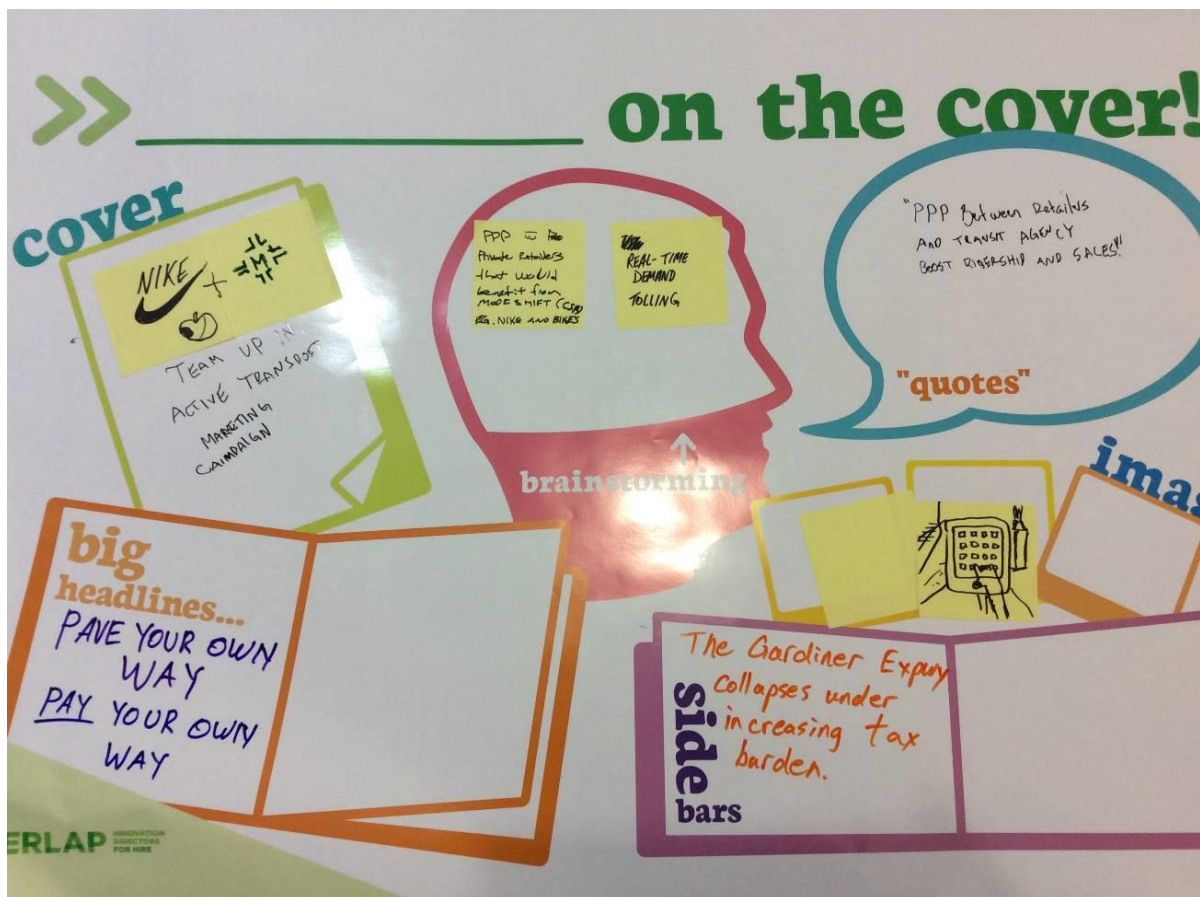 on the cover!
cover
NIKE +
M
TEAM UP IN
ACTIVE TRANSPORT
MARKETING
CAIMPAIGN
PPP
Private Retailers
that would
benefit from
MODESHIFT
EG. NIKE AND BIKES
REAL-TIME
DEMAND
TOLLING
brainstorming
"PPP Between Retailers
AND TRANSIT AGENCY
BOOST RIDERSHIP AND SALES!"
"quotes"
ima
big
headlines...
PAVE YOUR OWN
WAY
PAY YOUR OWN
WAY
The Gardiner
collapses under
increasing tax
burden.
side
bars
ERLAP
INNOVATION
DIRECTORS
FOR HIRE